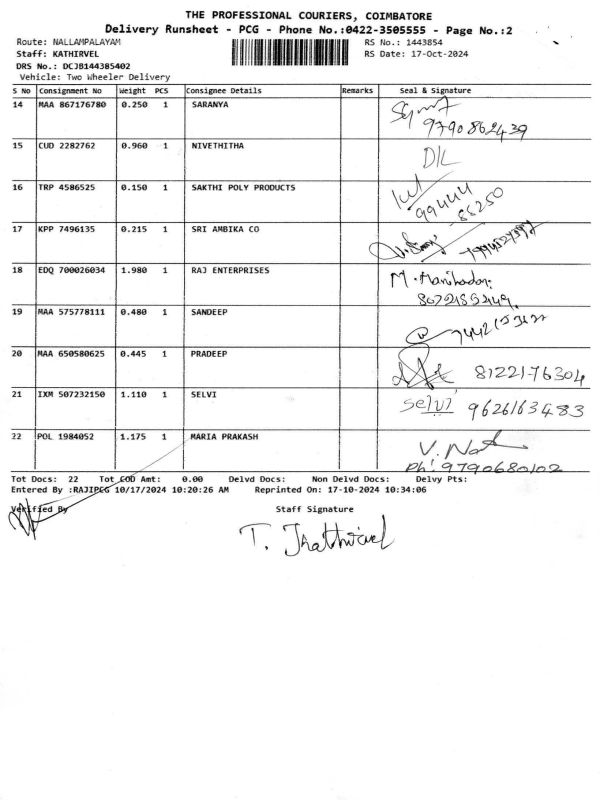 THE PROFESSIONAL COURIERS, COIMBATORE
Delivery Runsheet - PCG - Phone No.:0422-3505555 - Page No.:2
Route: NALLAMPALAYAM RS No.: 1443854
Staff: KATHIRVEL RS Date: 17-Oct-2024
DRS No.: DCJB144385402
Vehicle: Two Wheeler Delivery
S No Consignment No Weight PCS Consignee Details Remarks Seal & Signature
14 MAA 867176780 0.250 1 SARANYA
9790862439
15 CUD 2282762 0.960 1 NIVETHITHA D/L
16 TRP 4586525 0.150 1 SAKTHI POLY PRODUCTS
99444
88250
17 KPP 7496135 0.215 1 SRI AMBIKA CO
18 EDQ 700026034 1.980 1 RAJ ENTERPRISES M. Manihadan
19 MAA 575778111 0.480 1 SANDEEP
20 MAA 650580625 0.445 1 PRADEEP 8122176304
21 IXM 507232150 1.110 1 SELVI Selvi 9626163483
22 POL 1984052 1.175 1 MARIA PRAKASH
Ph: 9790680102
Tot Docs: 22 Tot COD Amt: 0.00 Delvd Docs: Non Delvd Docs: Delvy Pts:
Entered By :RAJIPCG 10/17/2024 10:20:26 AM Reprinted On: 17-10-2024 10:34:06
Verified By Staff Signature
T. Kathirvel